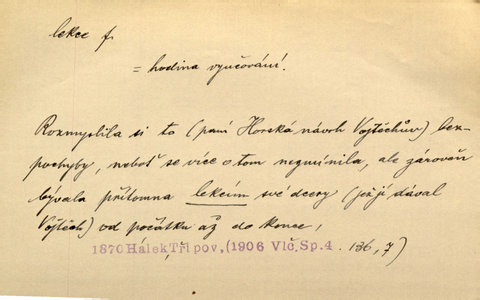 lekce f.
= hodina vyučování.
Rozmyslila si to (paní Horská návrh Vojtěchův) bez-
pochyby, neboť se více o tom nezmínila, ale zároveň
bývala přítomna lekcím své dcery (jež jí dával
Vojtěch) od počátku až do konce,
1870 Hálek Tři pov, (1906 Vlč. Sp. 4. 136, 7)